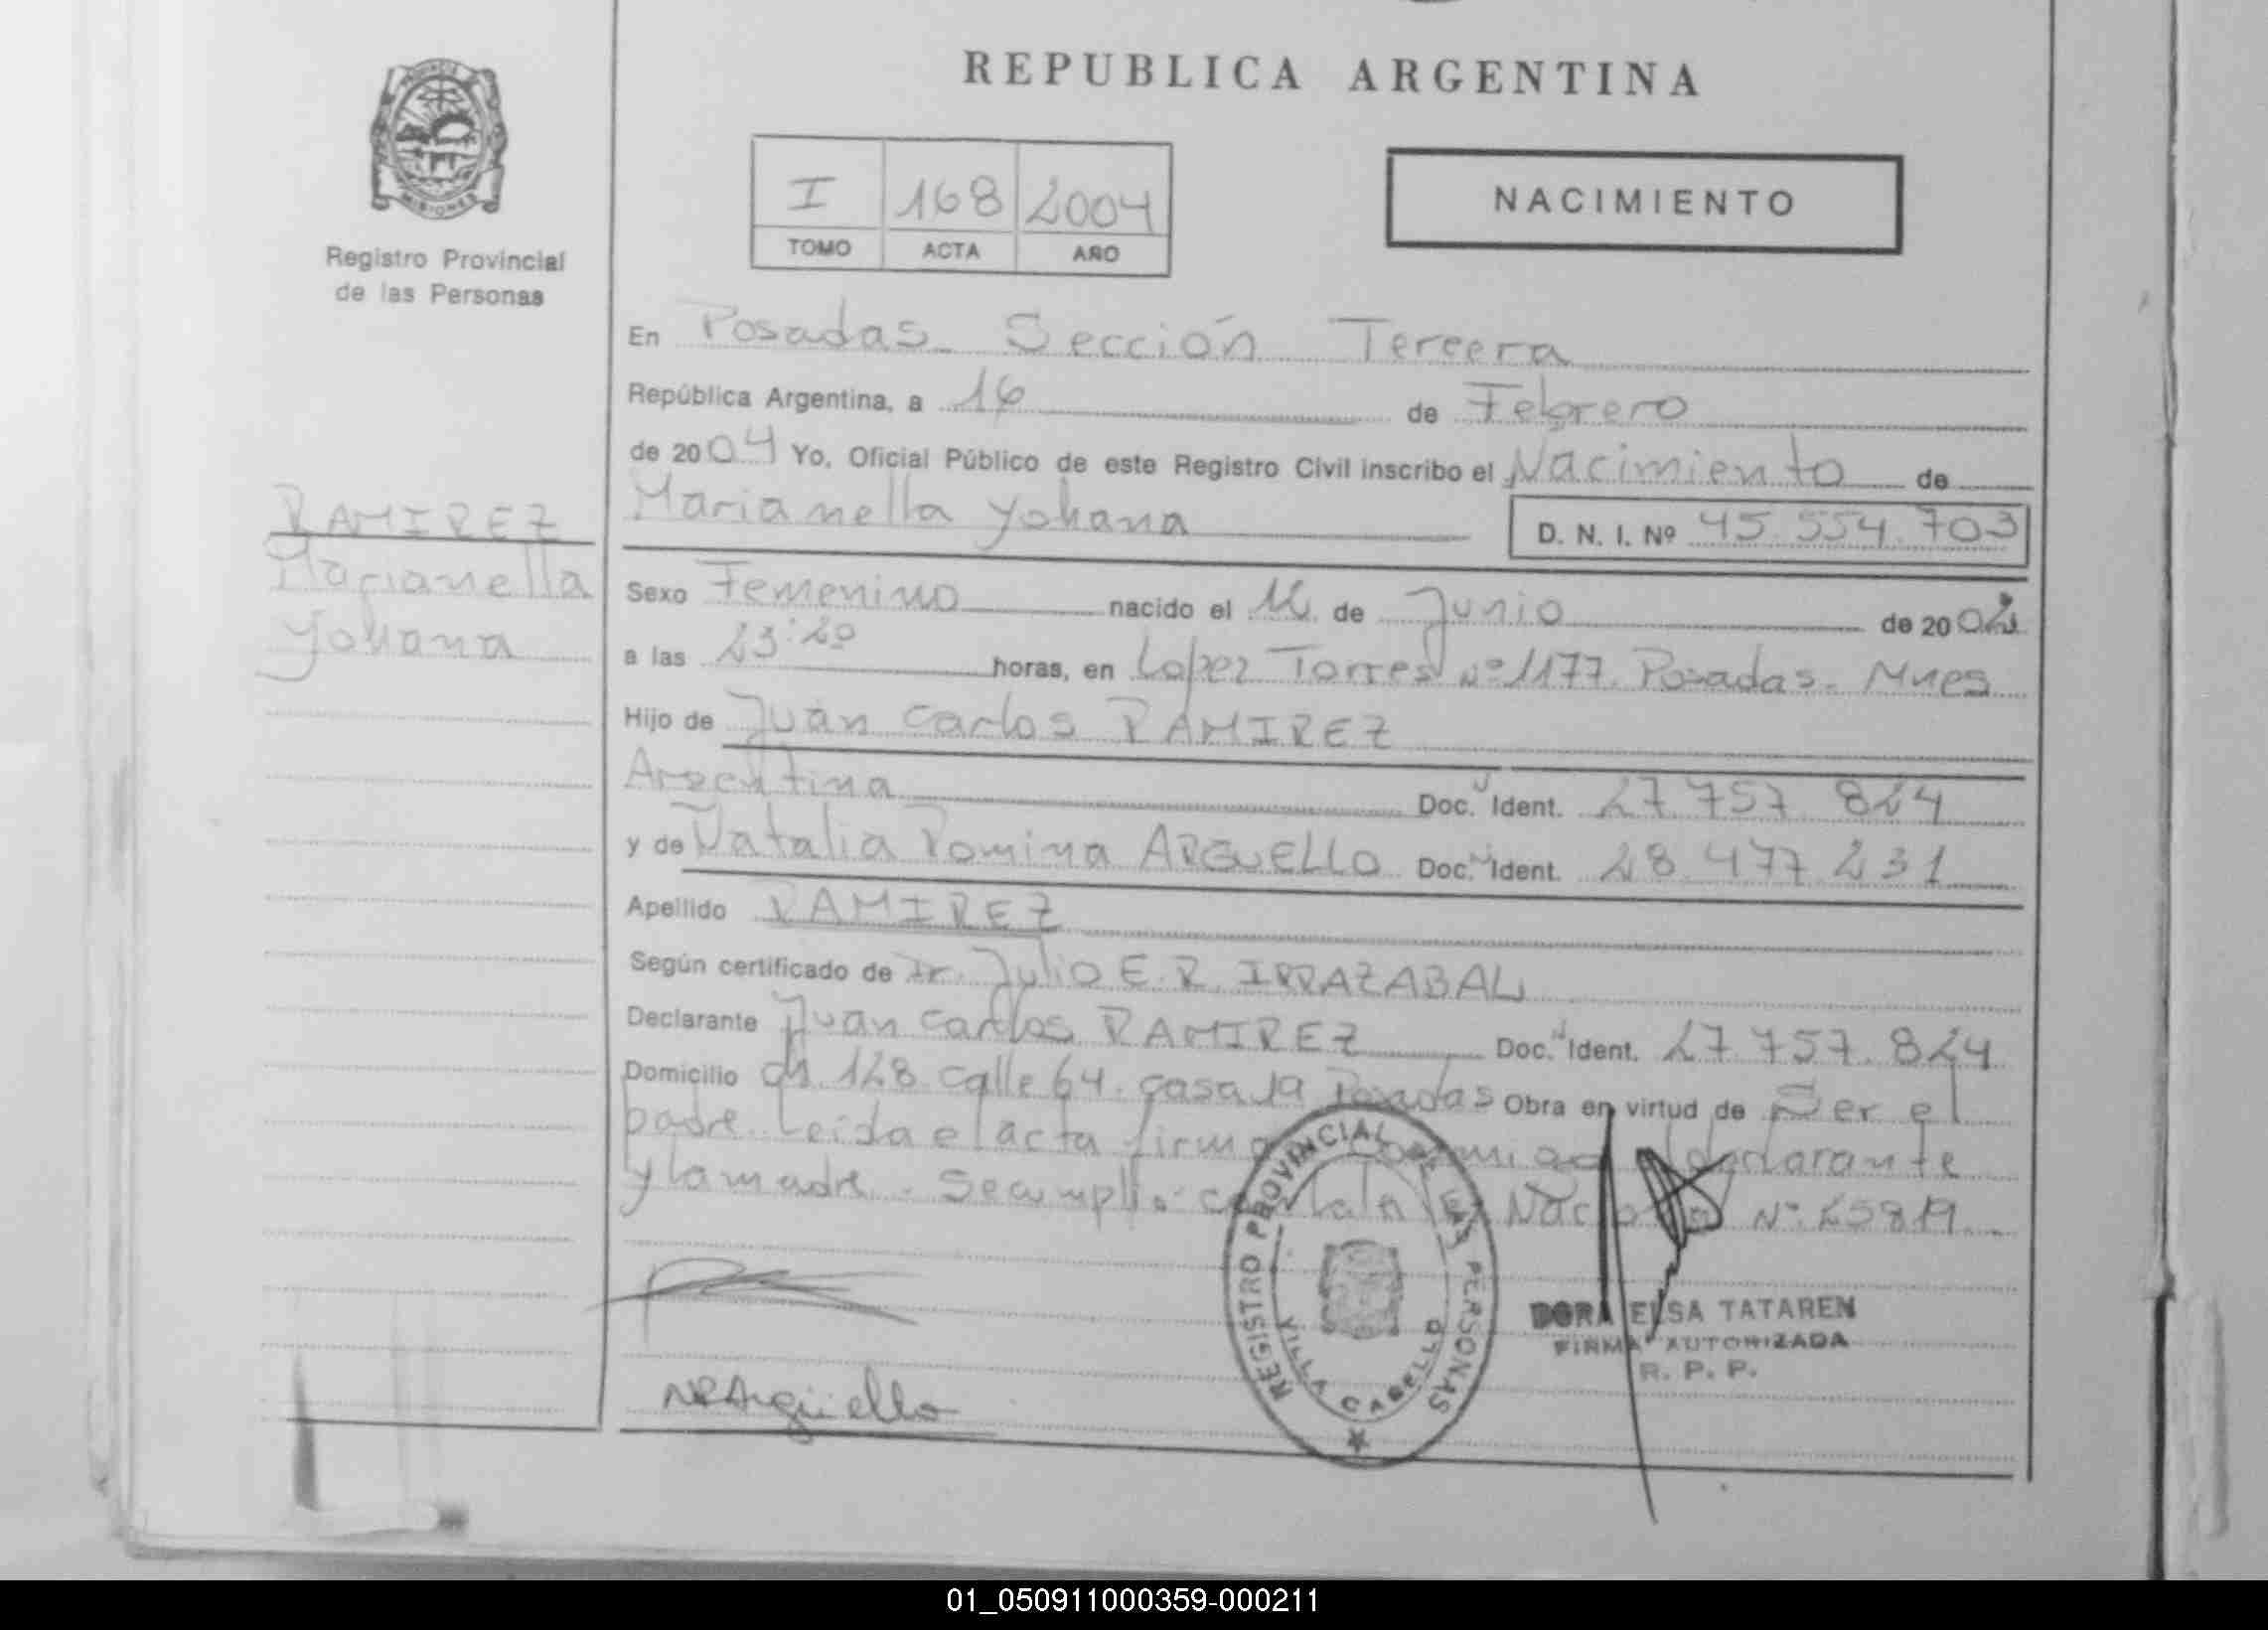 REPUBLICA ARGENTINA
MISIONES
Registro Provincial
de las Personas
I 168 2004
TOMO ACTA AÑO
NACIMIENTO
En Posadas - Sección Tercera
República Argentina, a 16 de Febrero
de 2004 Yo, Oficial Público de este Registro Civil inscribo el Nacimiento de
Marianella Yohana
D. N. I. Nº 45.554.703
RAMIREZ
Marianella
Yohana
Sexo Femenino nacido el de Junio de 20
a las 23:20 horas, en Lopez Torres Nº 1177. Posadas - Mnes
Hijo de Juan Carlos RAMIREZ
Argentina Doc. Ident. 27.757.824
y de Natalia Romina ARGUELLO Doc. Ident. 28.477.231
Apellido RAMIREZ
Según certificado de Dr. Julio E. R. IRRAZABAL
Declarante Juan Carlos RAMIREZ Doc. Ident. 27.757.824
Domicilio ch. 128 calle 64. casa 19 Posadas Obra en virtud de Ser el
padre. Leida el acta firma conmigo el declarante
y la madre. Se cumplió con la Ley Nacional Nº 25819
REGISTRO PROVINCIAL DE LAS PERSONAS
VILLA CABELLO
DORA ELSA TATAREN
FIRMA AUTORIZADA
R. P. P.
NRArgüello
01_050911000359-000211